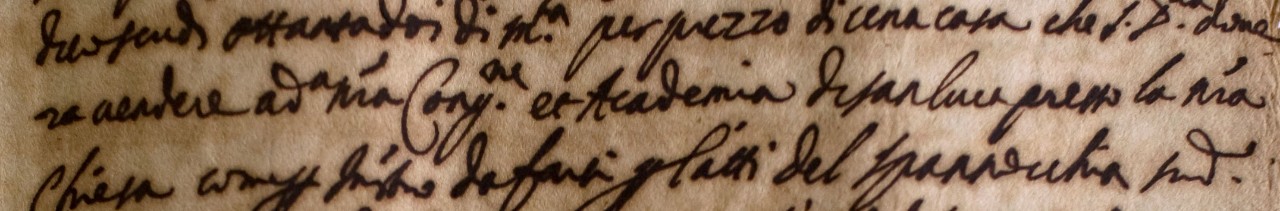 scudi ottantadoi di m.ta per prezzo di una casa che S. D. dove
ra vendere ad.a nr̃a Cong.ne et Academia di san luca presso la nr̃a
Chiesa come p Instro da farsi p l'atti del Spannocchia sud.